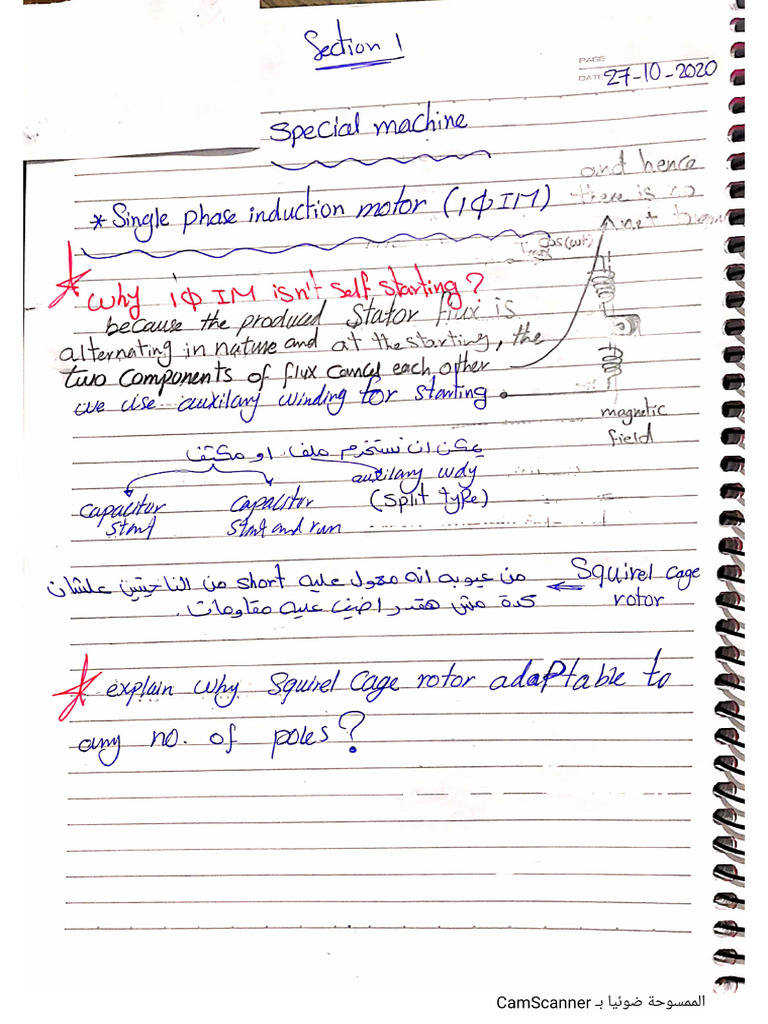 Section 1
PAGE
DATE 27-10-2020
special machine
and hence
there is no
net
* Single phase induction motor (1Φ IM)
Tmax cos(wt)
why 1Φ IM isn't self starting?
because the produced stator flux is
alternating in nature and at the starting, the
two components of flux cancel each other
we use auxilary winding for starting.
magnetic
field
يمكن ان نستخدم ملف او مكثف
auxilary wdg
(split type)
capacitor
start
capacitor
start and run
Squirel cage
rotor
من عيوبه انه معمول عليه short من الناحيتين علشان
كدة مش هقدر اضيف عليه مقاومات.
explain why Squirel cage rotor adaptable to
any no. of poles?
الممسوحة ضوئيا بـ CamScanner